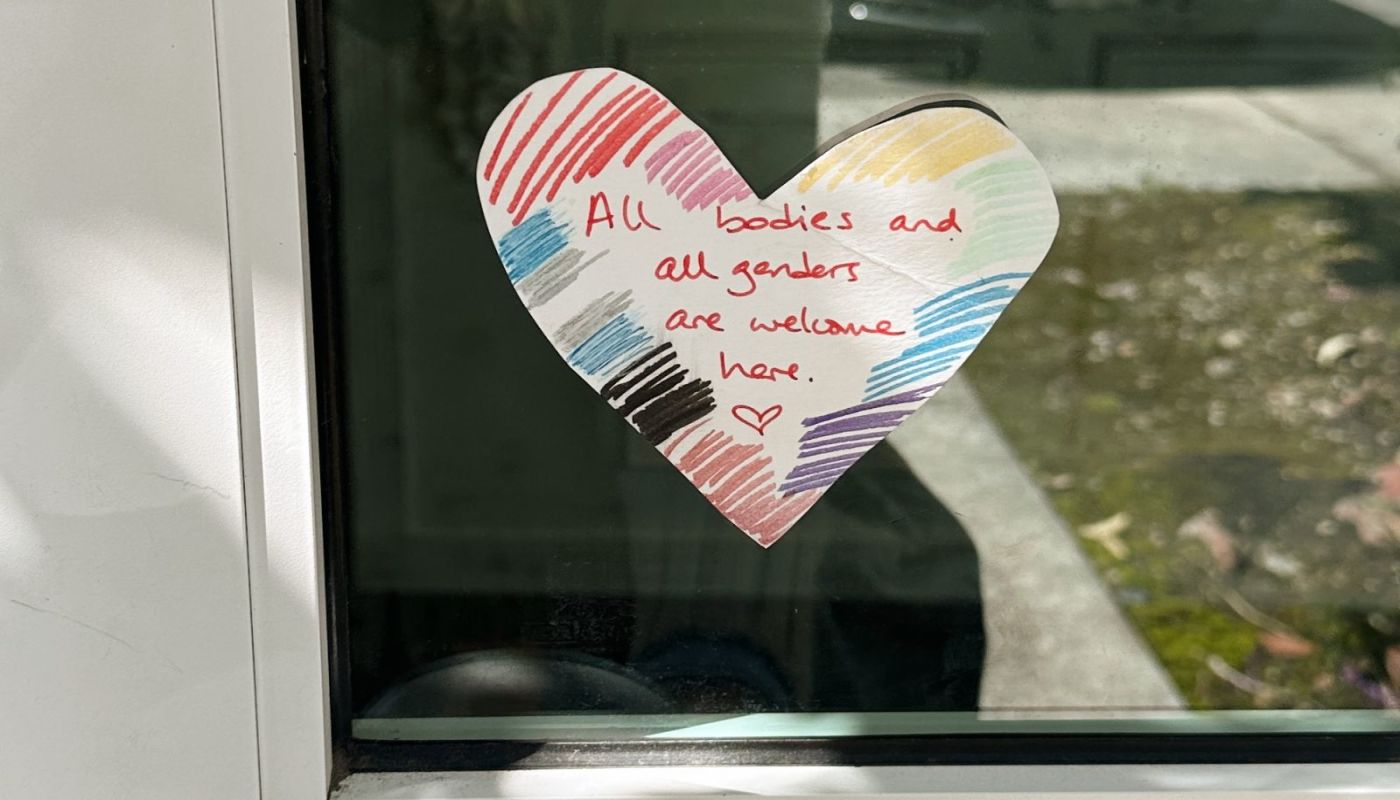 All bodies and
all genders
are welcome
here.